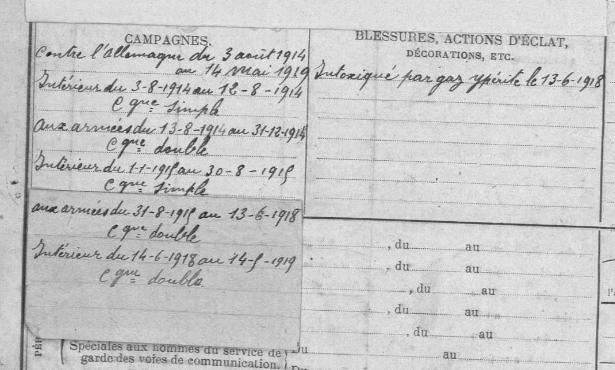 CAMPAGNES.
contre l'Allemagne du 3 août 1914
au 14 mai 1919
Intérieur du 3-8-1914 au 12-8-1914
Cgne simple
aux armées du 13-8-1914 au 31-12-1914
Cgne double
Intérieur du 1-1-1915 au 30-8-1915
Cgne simple
aux armées du 31-8-1915 au 13-6-1918
Cgne double
Intérieur du 14-6-1918 au 14-5-1919
Cgne double
BLESSURES, ACTIONS D'ÉCLAT,
DÉCORATIONS, ETC.
Intoxiqué par gaz ypérite le 13-6-1918
, du au
, du au
, du au
, du au
, du au
Spéciales aux hommes du service de
garde des voies de communication.
Du au
PÉR